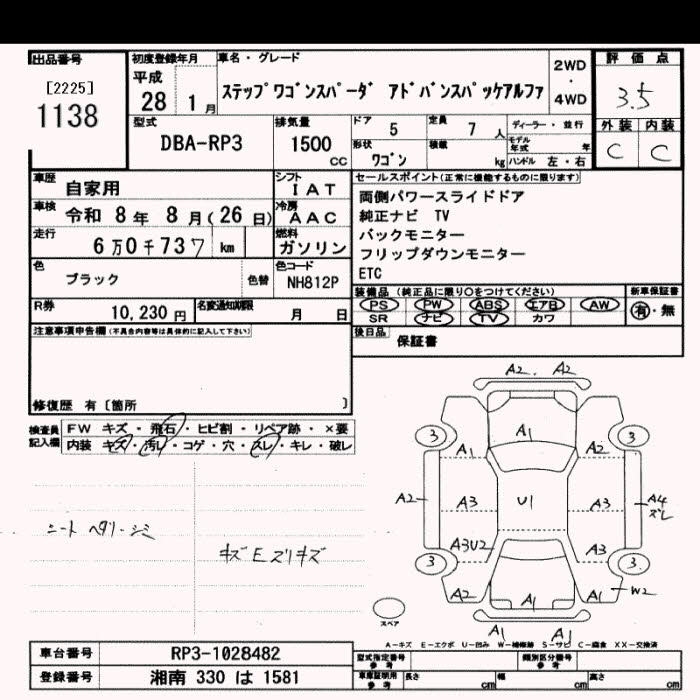 出品番号 初度登録年月 車名・グレード 2WD・4WD 評価点
[2225] 1138
平成 28 1月
ステップワゴンスパーダ アドバンスパッケアルファ
3.5
型式 DBA-RP3 排気量 1500 CC
ドア 5 定員 7 人 ディーラー・並行
形状 ワゴン 積載 kg モデル年式 年 ハンドル 左・右
外装 内装
C C
車歴 自家用 シフト IAT
車検 令和 8年 8月(26日) 冷房 AAC
走行 6万0千737 km 燃料 ガソリン
色 ブラック 色替 色コード NH812P
R券 10,230円 名変通知期限 月 日
セールスポイント(正常に機能するものに限ります)
両側パワースライドドア
純正ナビ TV
バックモニター
フリップダウンモニター
ETC
装備品(純正品に限り○をつけてください) 新車保証書
PS PW ABS エアB AW 有・無
SR ナビ TV カワ
後日品 保証書
注意事項申告欄(不具合内容等は具体的に記入して下さい)
修復歴 有〔箇所 〕
検査員記入欄 FW キズ・飛石・ヒビ割・リペア跡・×要
内装 キズ・汚レ・コゲ・穴・スレ・キレ・破レ
キズEズリキズ
A2. A2
3 A1 3
A1 A2
A2 A3 U1 A3 A4
ズレ
A3U2 A3
3 3
A2 A1 A1 W2
A1 A1
スペア
A-キズ E-エクボ U-凹み W-補修跡 S-サビ C-腐食 XX-交換済
車台番号 RP3-1028482
登録番号 湘南 330 は 1581
型式指定番号 参考 類別区分番号 参考
車庫証明用 参考 長さ cm 幅 cm 高さ cm